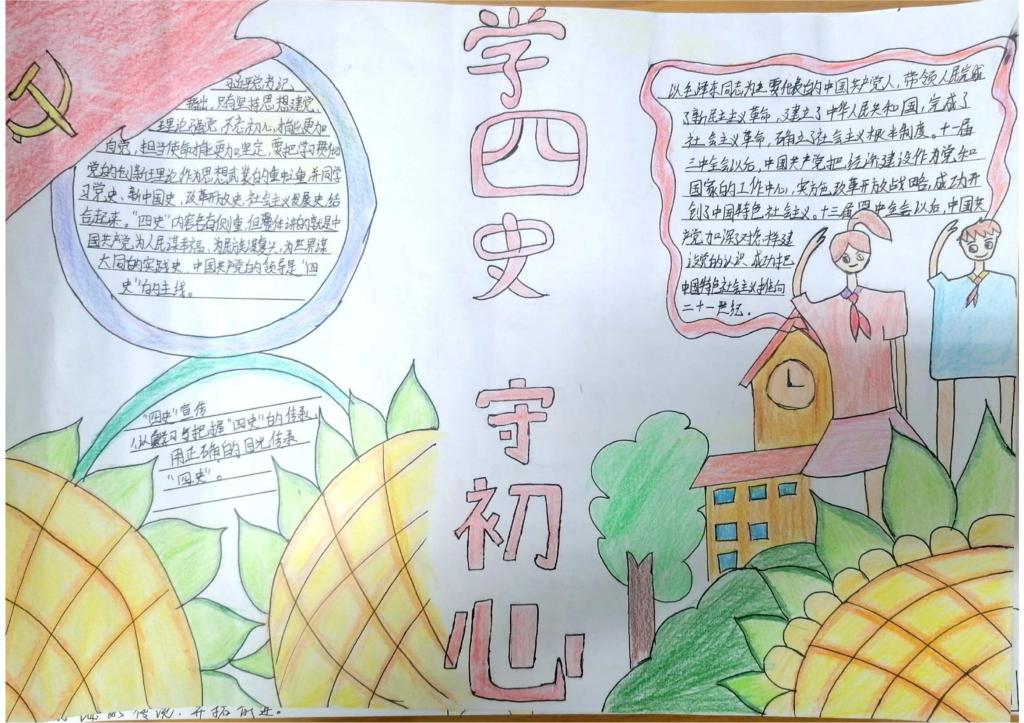 学四史
守初心
习近平总书记
指出,只有坚持思想建党、
理论强党,不忘初心,才能更加
自觉,担当使命才能更加坚定,要把学习贯彻
党的创新理论作为思想武装的重中之重,并同学
习党史、新中国史、改革开放史、社会主义发展史,结
合起来。"四史"内容各有侧重,但整体讲的就是中
国共产党,为人民谋幸福、为民族谋复兴,为世界谋
大同的实践史,中国共产党的领导是"四
史"的主线。
以毛泽东同志为主要代表的中国共产党人,带领人民完成
了新民主主义革命,建立了中华人民共和国,完成了
社会主义革命,确立社会主义根本制度。十一届
三中全会以后,中国共产党把经济建设作为党和
国家的工作中心,实施改革开放战略,成功开
创了中国特色社会主义。十三届四中全会以后,中国共
产党加深了对怎样建
设党的认识,成功把
中国特色社会主义推向
二十一世纪。
"四史"宣传
与把握"四史"的传承,
用正确的目光传承
"四史"。
的传统,开拓前进。